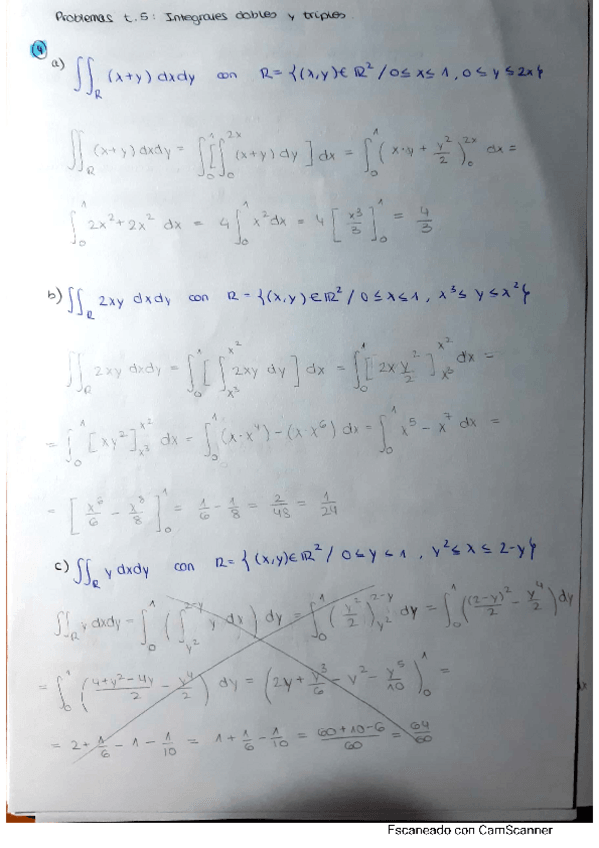 Problemas t.5: Integrales dobles y triples.
(4)
a) ∬_R (x+y) dxdy con R = {(x,y) ∈ ℝ² / 0 ≤ x ≤ 1, 0 ≤ y ≤ 2x}
∬_R (x+y) dxdy = ∫₀¹ [∫₀^{2x} (x+y) dy] dx = ∫₀¹ (x·y + y²/2)₀^{2x} dx =
∫₀¹ 2x² + 2x² dx = 4 ∫₀¹ x² dx = 4 [x³/3]₀¹ = 4/3
b) ∬_R 2xy dxdy con R = {(x,y) ∈ ℝ² / 0 ≤ x ≤ 1, x³ ≤ y ≤ x²}
∬_R 2xy dxdy = ∫₀¹ [∫_{x³}^{x²} 2xy dy] dx = ∫₀¹ [2x y²/2]_{x³}^{x²} dx =
= ∫₀¹ [xy²]_{x³}^{x²} dx = ∫₀¹ (x·x⁴) - (x·x⁶) dx = ∫₀¹ x⁵ - x⁷ dx =
= [x⁶/6 - x⁸/8]₀¹ = 1/6 - 1/8 = 2/48 = 1/24
c) ∬_R y dxdy con R = {(x,y) ∈ ℝ² / 0 ≤ y ≤ 1, y² ≤ x ≤ 2-y}
∬_R y dxdy = ∫₀¹ (∫_{y²}^{2-y} y dx) dy = ∫₀¹ (y²/2)_{y²}^{2-y} dy = ∫₀¹ ((2-y)²/2 - y⁴/2) dy
= ∫₀¹ ((4+y²-4y)/2 - y⁴/2) dy = (2y + y³/6 - y² - y⁵/10)₀¹ =
= 2 + 1/6 - 1 - 1/10 = 1 + 1/6 - 1/10 = (60+10-6)/60 = 64/60
Escaneado con CamScanner